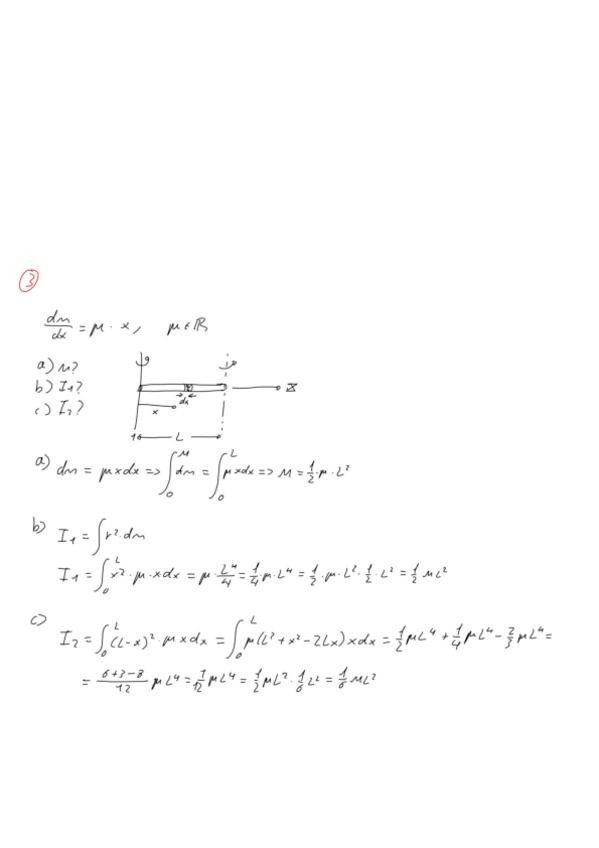 3
dm/dx = μ · x, μ ∈ ℝ
a) M?
b) I₁?
c) I₂?
dx
x
L
a) dm = μxdx => ∫₀ᴹ dm = ∫₀ᴸ μxdx => M = 1/2 · μ · L²
b) I₁ = ∫r² · dm
I₁ = ∫₀ᴸ x² · μ · xdx = μ · L⁴/4 = 1/4 · μ · L⁴ = 1/2 · μ · L² · 1/2 · L² = 1/2 ML²
c) I₂ = ∫₀ᴸ (L-x)² · μxdx = ∫₀ᴸ μ(L² + x² - 2Lx)xdx = 1/2 μL⁴ + 1/4 μL⁴ - 2/3 μL⁴ =
= (6+3-8)/12 μL⁴ = 1/12 μL⁴ = 1/2 μL² · 1/6 L² = 1/6 ML²